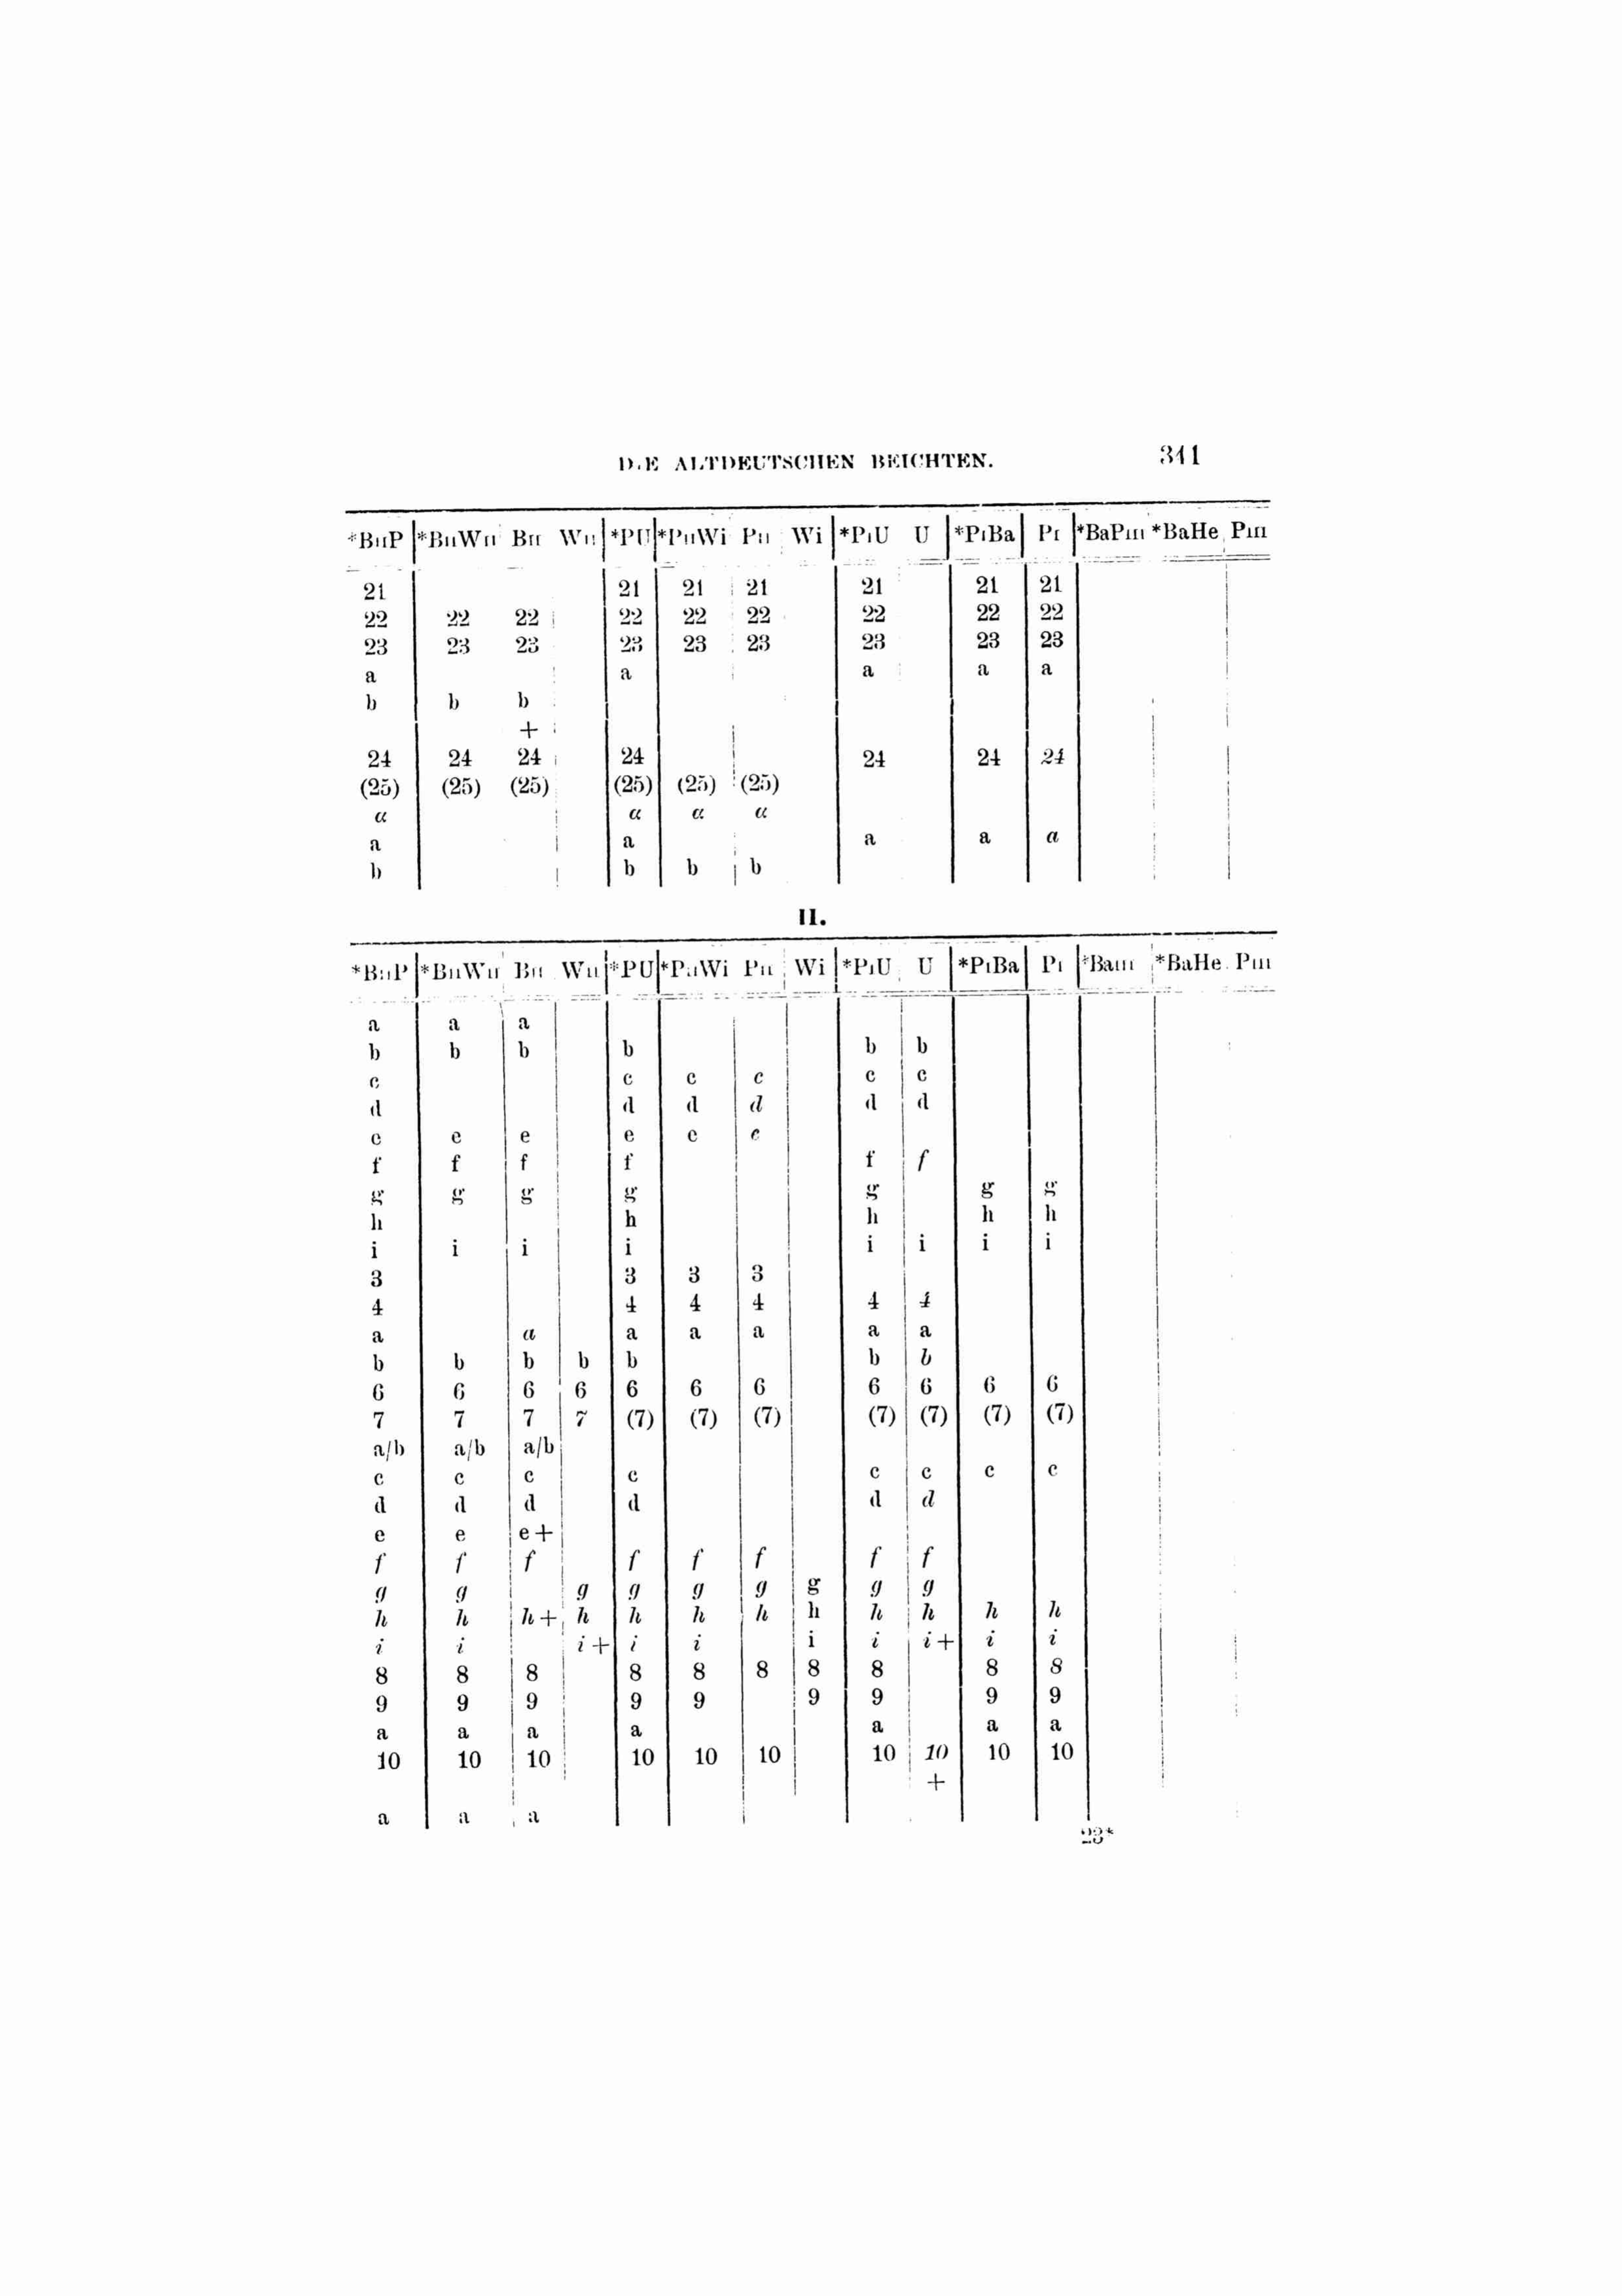 DIE ALTDEUTSCHEN BEICHTEN. 341
*BIIP *BIIWII BII WII *PU *PIIWI PII WI *PIU U *PIBa PI *BaPIII *BaHe PIII
21 21 21 21 21 21 21
22 22 22 22 22 22 22 22 22
23 23 23 23 23 23 23 23 23
a a a a a
b b b
+
24 24 24 24 24 24 24
(25) (25) (25) (25) (25) (25)
a a a a
a a a a a
b b b b
II.
*BIIP *BIIWII BII WII *PU *PIIWi PII Wi *PIU U *PIBa PI *BaIII *BaHe PIII
a a a
b b b b b b
c c c c c c
d d d d d d
e e e e e e
f f f f f f
g g g g g g g
h h h h h
i i i i i i i i
3 3 3 3
4 4 4 4 4 4
a a a a a a a
b b b b b b b
6 6 6 6 6 6 6 6 6 6 6
7 7 7 7 (7) (7) (7) (7) (7) (7) (7)
a/b a/b a/b
c c c c c c c c
d d d d d d
e e e+
f f f f f f f f
g g g g g g g g g
h h h+ h h h h h h h h h
i i i+ i i i i i+ i i
8 8 8 8 8 8 8 8 8 8
9 9 9 9 9 9 9 9 9
a a a a a a a
10 10 10 10 10 10 10 10 10 10
+
a a a
23*